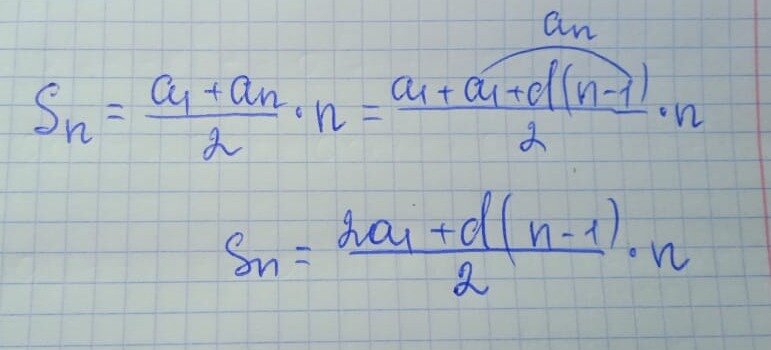 aₙ
Sₙ = (a₁ + aₙ)/2 · n = (a₁ + a₁ + d(n-1))/2 · n
Sₙ = (2a₁ + d(n-1))/2 · n